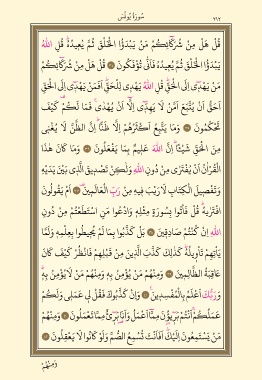 سُورَةُ يُونُسَ
٢١٢
قُلْ هَلْ مِنْ شُرَكَٓائِكُمْ مَنْ يَبْدَؤُا الْخَلْقَ ثُمَّ يُعٖيدُهُ قُلِ اللّٰهُ
يَبْدَؤُا الْخَلْقَ ثُمَّ يُعٖيدُهُ فَاَنّٰى تُؤْفَكُونَ ۞ قُلْ هَلْ مِنْ شُرَكَٓائِكُمْ
مَنْ يَهْدٖٓى اِلَى الْحَقِّ قُلِ اللّٰهُ يَهْدٖى لِلْحَقِّ اَفَمَنْ يَهْدٖٓى اِلَى الْحَقِّ
اَحَقُّ اَنْ يُتَّبَعَ اَمَّنْ لَا يَهِدّٖٓى اِلَّٓا اَنْ يُهْدٰى فَمَا لَكُمْ كَيْفَ
تَحْكُمُونَ ۞ وَمَا يَتَّبِعُ اَكْثَرُهُمْ اِلَّا ظَنًّا اِنَّ الظَّنَّ لَا يُغْنٖى
مِنَ الْحَقِّ شَيْـًٔا اِنَّ اللّٰهَ عَلٖيمٌ بِمَا يَفْعَلُونَ ۞ وَمَا كَانَ هٰذَا
الْقُرْاٰنُ اَنْ يُفْتَرٰى مِنْ دُونِ اللّٰهِ وَلٰكِنْ تَصْدٖيقَ الَّذٖى بَيْنَ يَدَيْهِ
وَتَفْصٖيلَ الْكِتَابِ لَا رَيْبَ فٖيهِ مِنْ رَبِّ الْعَالَمٖينَ ۞ اَمْ يَقُولُونَ
افْتَرٰيهُ قُلْ فَأْتُوا بِسُورَةٍ مِثْلِهٖ وَادْعُوا مَنِ اسْتَطَعْتُمْ مِنْ دُونِ
اللّٰهِ اِنْ كُنْتُمْ صَادِقٖينَ ۞ بَلْ كَذَّبُوا بِمَا لَمْ يُحٖيطُوا بِعِلْمِهٖ وَلَمَّا
يَأْتِهِمْ تَأْوٖيلُهُ كَذٰلِكَ كَذَّبَ الَّذٖينَ مِنْ قَبْلِهِمْ فَانْظُرْ كَيْفَ كَانَ
عَاقِبَةُ الظَّالِمٖينَ ۞ وَمِنْهُمْ مَنْ يُؤْمِنُ بِهٖ وَمِنْهُمْ مَنْ لَا يُؤْمِنُ بِهٖ
وَرَبُّكَ اَعْلَمُ بِالْمُفْسِدٖينَ ۞ وَاِنْ كَذَّبُوكَ فَقُلْ لٖى عَمَلٖى وَلَكُمْ
عَمَلُكُمْ اَنْتُمْ بَرٖٓيؤُ۫نَ مِمَّٓا اَعْمَلُ وَاَنَا۬ بَرٖٓىءٌ مِمَّا تَعْمَلُونَ ۞ وَمِنْهُمْ
مَنْ يَسْتَمِعُونَ اِلَيْكَ اَفَاَنْتَ تُسْمِعُ الصُّمَّ وَلَوْ كَانُوا لَا يَعْقِلُونَ ۞
وَمِنْهُمْ